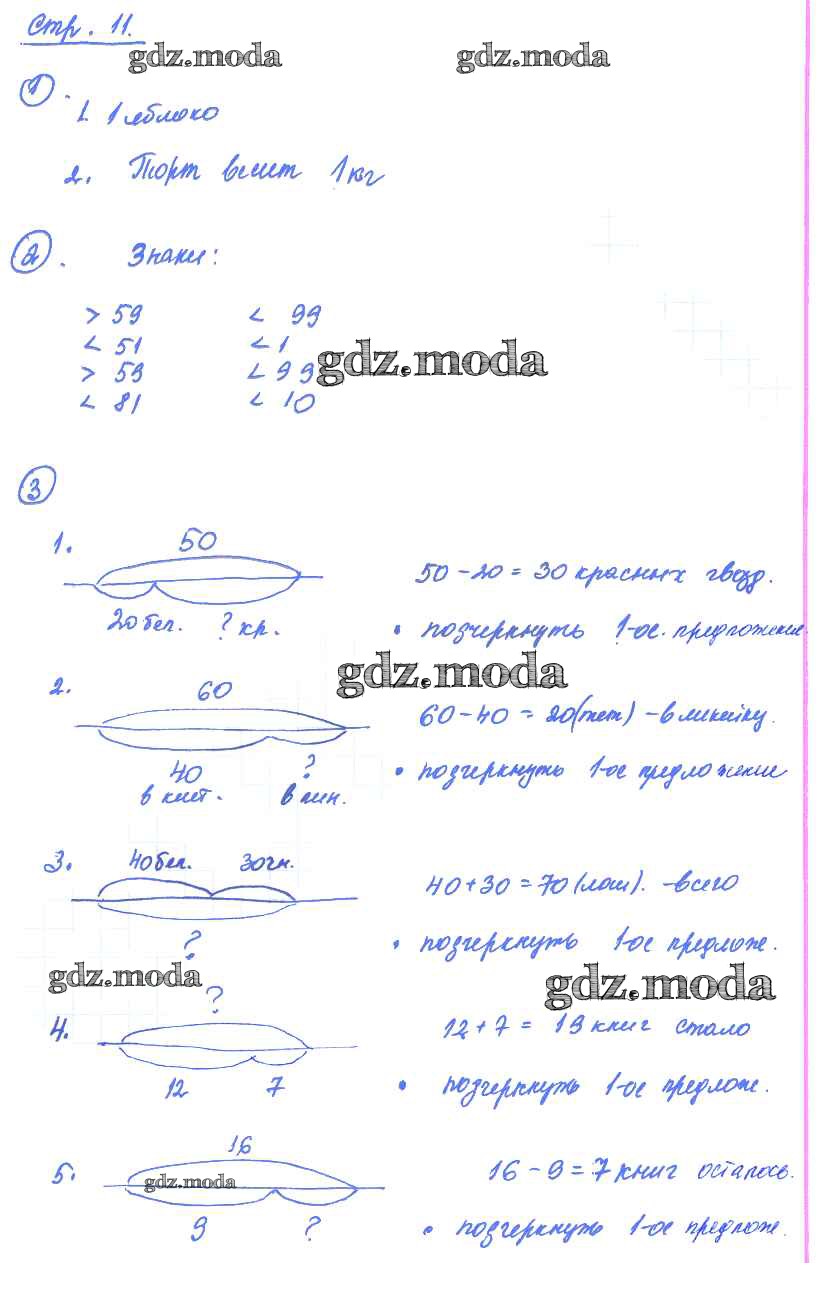 Стр. 11.
gdz.moda gdz.moda
1.
1. 1 яблоко
2. Торт весит 1 кг
2. Знаки:
> 59 < 99
< 51 < 1
> 59 < 99
< 81 < 10
gdz.moda
3
1. 50
50 - 20 = 30 красных гвозд.
20 бел. ? кр.
• подчеркнуть 1-ое. предложение.
gdz.moda
2. 60
60 - 40 = 20 (тет) - в линейку.
40 ?
в клет. в лин.
• подчеркнуть 1-ое предложение
3. 40 бел. 30 гн.
40 + 30 = 70 (лош). - всего
?
• подчеркнуть 1-ое предлож.
gdz.moda gdz.moda
?
4.
12 + 7 = 19 книг стало
12 7
• подчеркнуть 1-ое предлож.
16
5.
16 - 9 = 7 книг осталось.
gdz.moda
9 ?
• подчеркнуть 1-ое предлож.